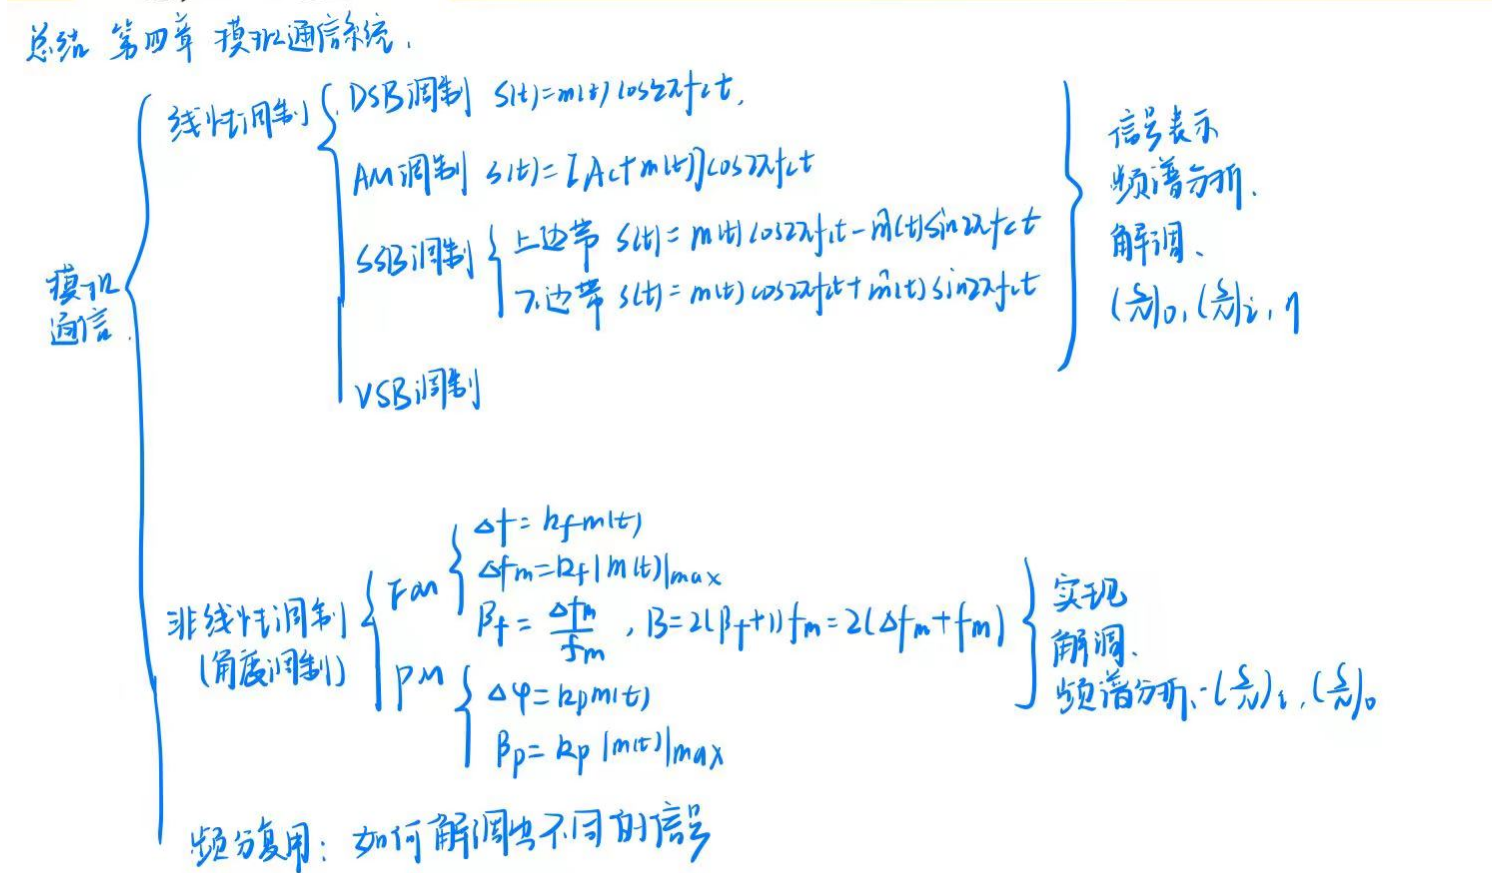 总结 第四章 模拟通信系统.
模拟
通信.
线性调制
DSB调制 s(t)=m(t)cos2πfct,
AM调制 s(t)=[Ac+m(t)]cos2πfct
SSB调制
上边带 s(t)=m(t)cos2πfct-m̂(t)sin2πfct
下边带 s(t)=m(t)cos2πfct+m̂(t)sin2πfct
VSB调制
信号表示
频谱分析.
解调、
(S/N)o, (S/N)i, η
非线性调制
(角度调制)
FM
Δf=kfm(t)
Δfm=kf|m(t)|max
βf=Δfm/fm, B=2(βf+1)fm=2(Δfm+fm)
PM
Δφ=kpm(t)
βp=kp|m(t)|max
实现
解调.
频谱分析、(S/N)i, (S/N)o
频分复用: 如何解调出不同的信号